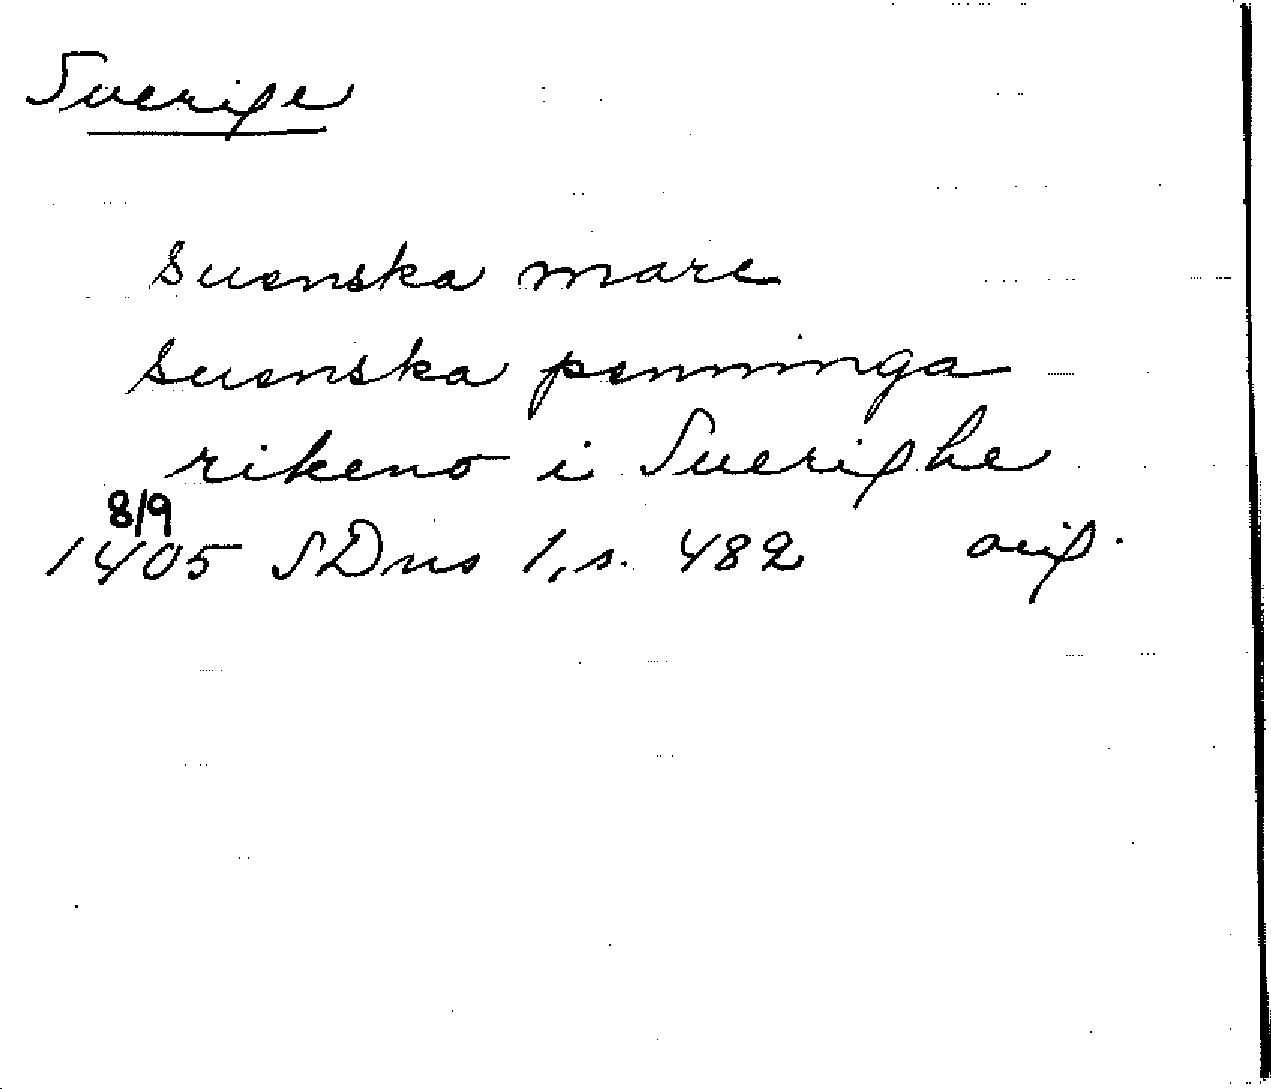 Sverige
suenska marc
suenska penninga
rikeno i Suerighe
8/9
1405 SDns 1, s. 482 orig.